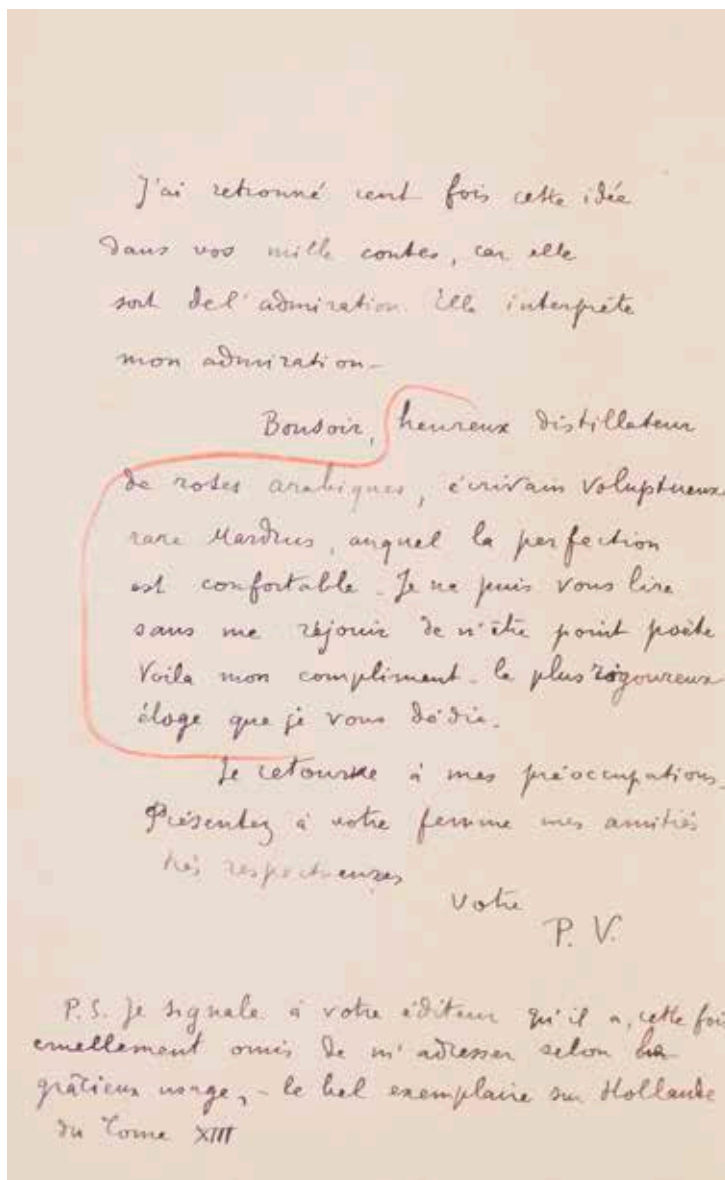 J'ai retrouvé cent fois cette idée
dans vos mille contes, car elle
sort de l'admiration. Elle interprète
mon admiration –
Bonsoir, heureux distillateur
de roses arabiques, écrivain voluptueux
rare Mardrus, auquel la perfection
est confortable – Je ne puis vous lire
sans me réjouir de n'être point poète
Voilà mon compliment – le plus rigoureux
éloge que je vous dédie.
Je retourne à mes préoccupations.
Présentez à votre femme mes amitiés
très respectueuses
Votre
P. V.
P.S. Je signale à votre éditeur qu'il a, cette fois
cruellement omis de m'adresser selon
gracieux usage, – le bel exemplaire sur Hollande
du Tome XIII